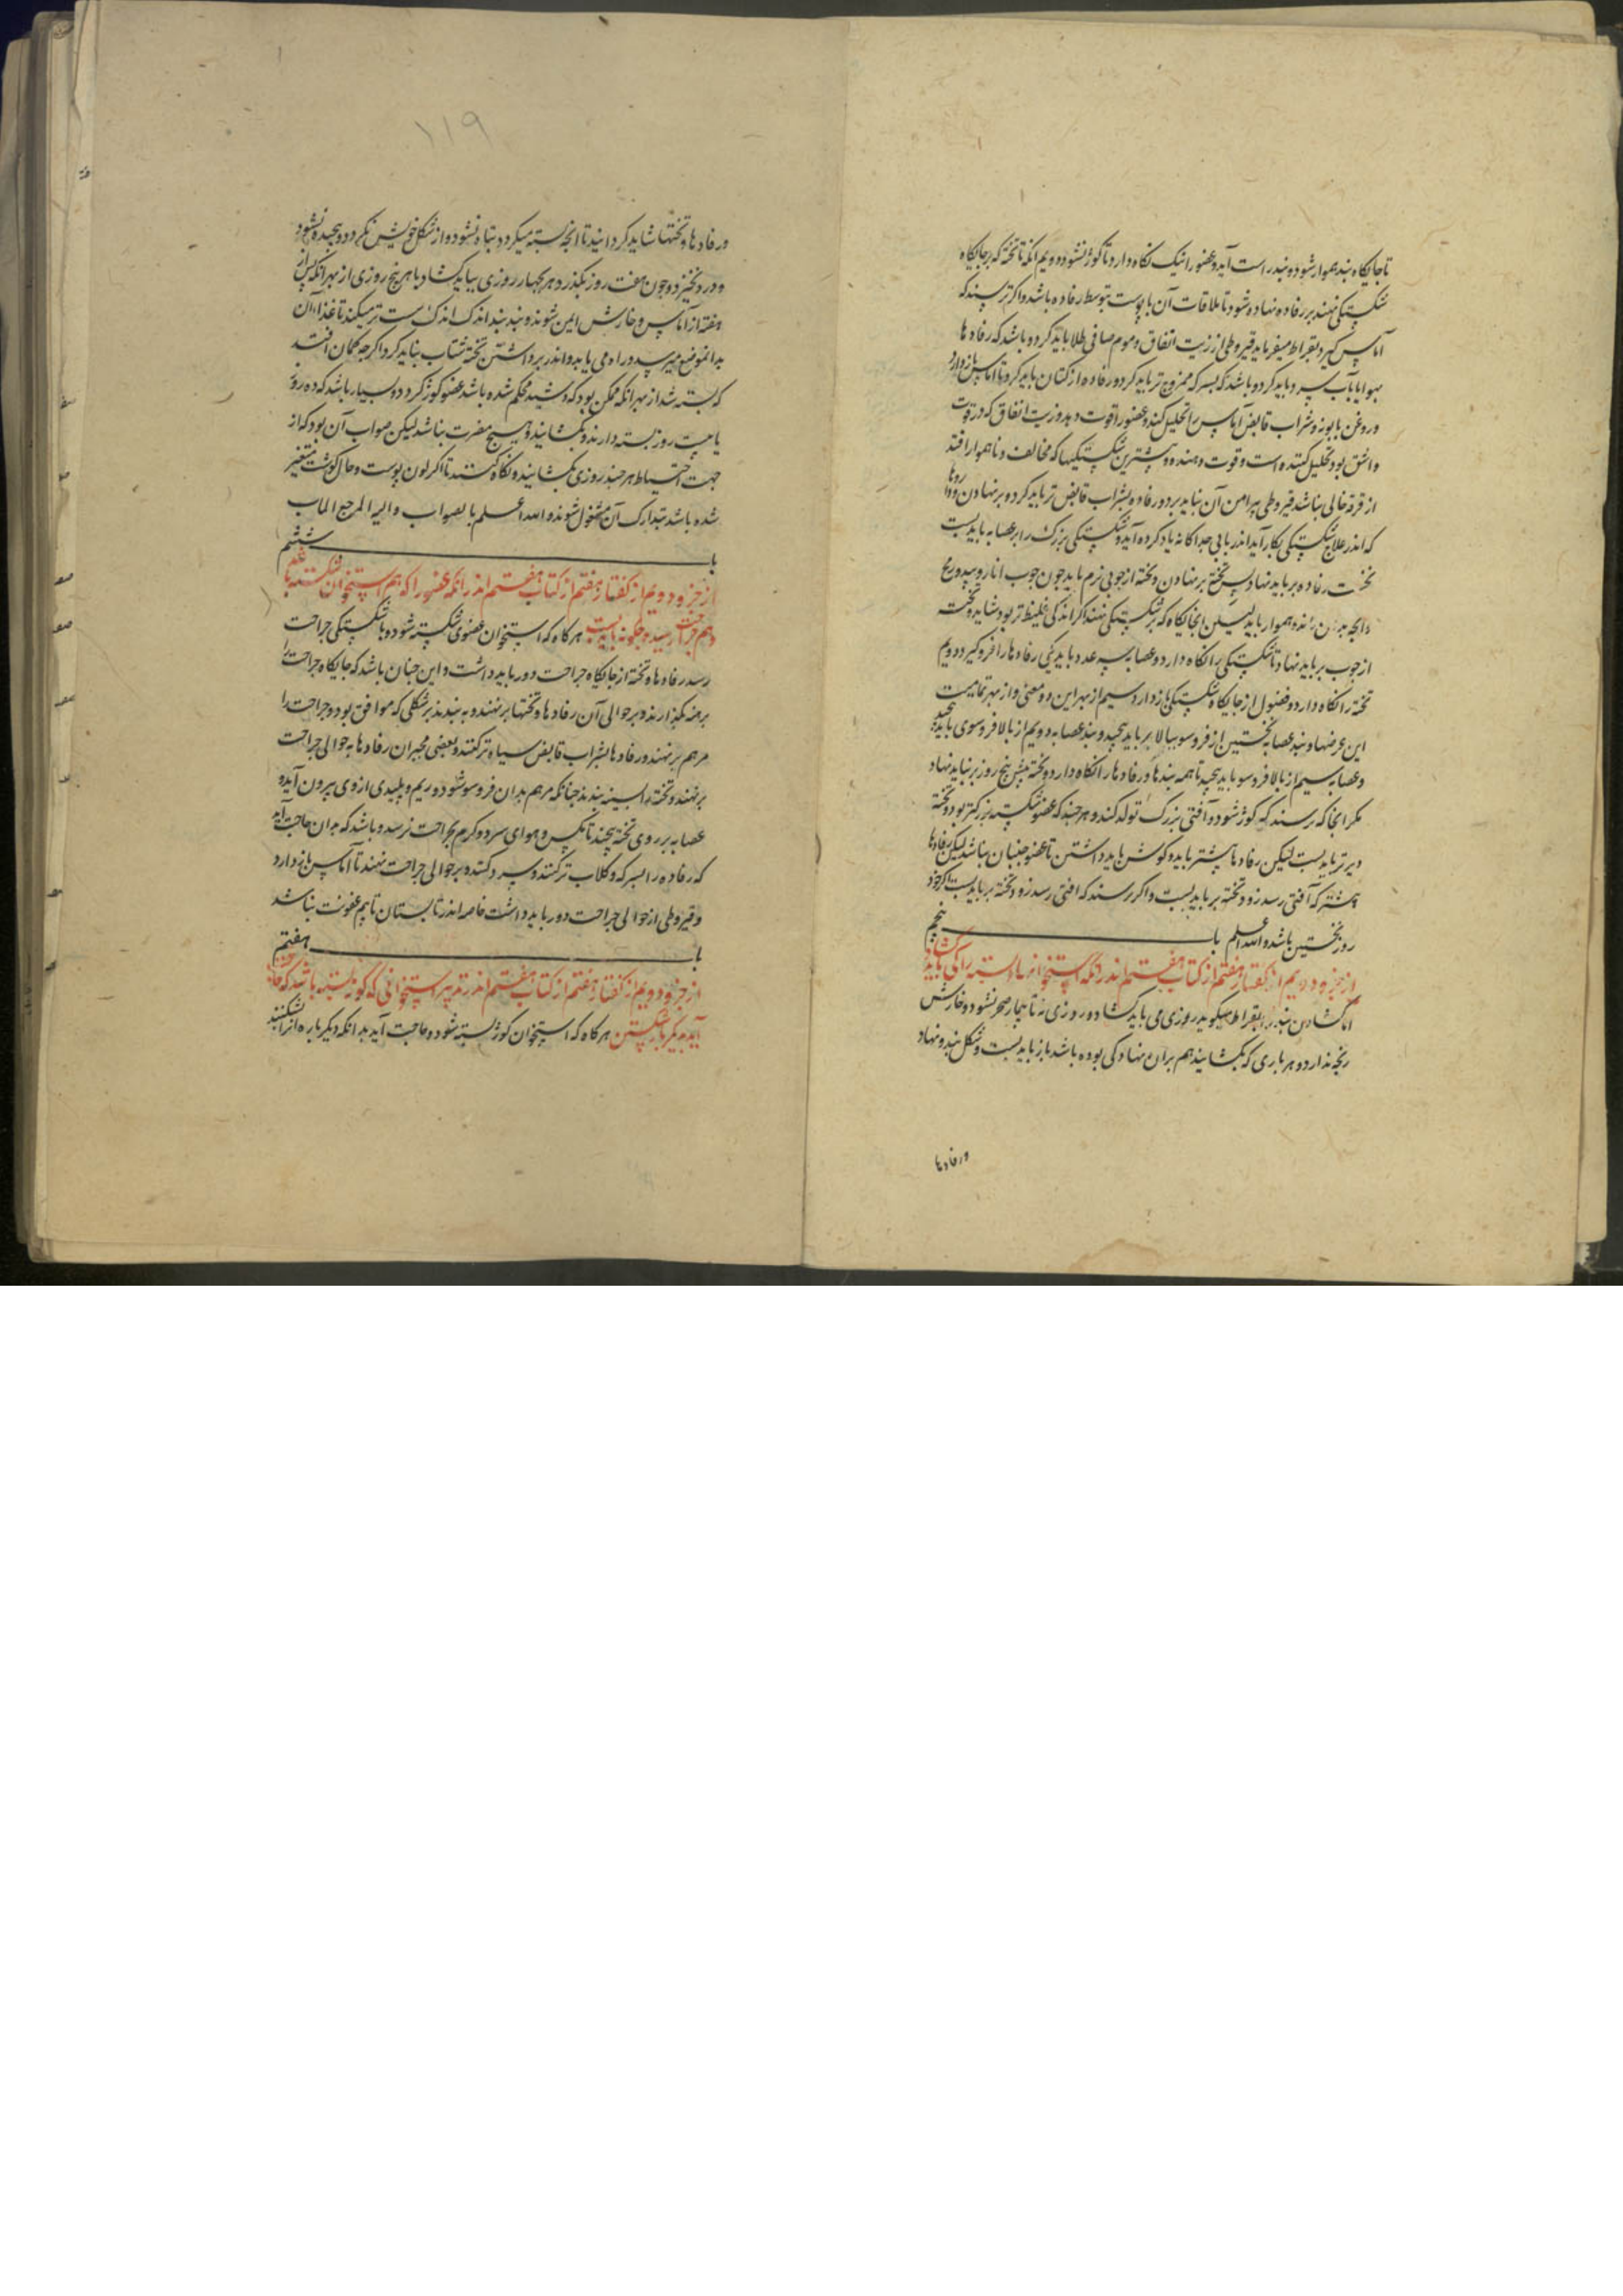 تا جایکاه بند هموار شود و بند راست آید و عضو را نیک نکاه دارد تا کوژ نشود دویم انکه تا تخته که بر جایکاه
شکستکی نهند بر رفاده نهاده شود تا ملاقات آن با پوست بتوسط رفاده باشد و اکر ترسند که
آماس کیرد بقراط میفرماید قیروطی از زیت انفاق و موم صافی طلا باید کرد و باشد که رفادها
بآب سرد باید کرد و باشد که بسرکه ممزوج تر باید کرد و رفاده از کتان باید کرد تا آماس باز دارد
و روغن بابونه و شراب قابض آماس را تحلیل کند و عضو را قوت دهد و زیت انفاق که در قوت
و اشق بود تحلیل کننده است و قوت دهنده و بیشترین شکستکیها که مخالف و ناهموار افتد
از قرحه خالی نباشد قیروطی پیرامن آن نباید برد و رفاده بشراب قابض تر باید کرد و بر نهادن و دواها
که اندر علاج شکستکی بکار آید اندر بابی جداکانه یاد کرده آید و شکستکی بزرک را بر عصابه باید بست
نخست رفاده بر باید نهاد پس تخته بر نهادن و تخته از چوبی نرم باید چون چوب انار و بید و
و انچه بدان ماند و هموار باید لیکن انجایکاه که بر شکستکی نهند اکر اندکی غلیظ تر بود شاید و تخت
از چوب بر باید نهاد تا شکستکی را نکاه دارد و عصابه سه عدد باید یکی رفادها را فرو کیرد دویم
تخته را نکاه دارد و فضول از جایکاه شکستکی باز دارد سیم از بهر این دو معنی و از بهر تمامیت
این غرضها و بند عصابه نخستین از فرو سو ببالا بر باید پیچید و بند عصابه دویم از بالا فرو سوی باید پیچید
و عصابه سیم از بالا فرو سو باید پیچید تا همه بندها و رفادها را نکاه دارد و تخته پیش پنج روز بر نباید نهاد
مکر انجا که ترسند که کوژ شود و آفتی بزرک تولد کند و هر چند که عضو شکسته بزرکتر بود تخته
دیرتر باید بست لیکن رفادها بیشتر باید و کوشش باید داشتن تا عضو جنبان نباشد لیکن رفادها
بیشتر که آفتی رسد زود تخته بر باید بست و اکر ترسند که افتی رسد زود تخته بر باید بست اکر خود
روز نخستین باشد والله اعلم باب پنجم
از جزو دویم از کفتار هفتم از کتاب هفتم اندر انکه استخوانهاء بسته را کی باید کشاد
اما کشادن بند را بقراط میکوید روزی می باید کشاد و روزی نه تا بیمار ضجر نشود و خارش
رنجه ندارد و هر باری که بکشایند هم بران نهاد کی بوده باشد باز باید بست و شکل بند و نهاد
ورفادها
۱۱۹
ورفادها و تختها شاید کردانید تا انچه بسته میکردد تباه نشود و از شکل خویش نکردد و پیچیده نشود
و درد نخیزد و چون هفت روز بکذرد هر بچهار روزی بباید کشاد یا هر پنج روزی از بهر انکه پس از
هفته از آماس و خارش ایمن شوند و بند بند اندک اندک سست تر میکند تا غذاء آن
بدانموضع میرسد و راه می یابد و اندر برداشتن تخته شتاب نباید کرد اکرچه کمان افتد
که بسته شد از بهر انکه ممکن بود که وشید محکم نشده باشد عضو کوژ کردد و بسیار باشد که ده روز
یا بیست روز بسته دارند و نکشایند و هیچ مضرت نباشد لیکن صواب آن بود که از
جهت احتیاط هر چند روزی بکشایند و نکاه کنند تا اکر لون پوست و حال کوشت متغیر
شده باشد بتدارک آن مشغول شوند والله اعلم بالصواب والیه المرجع المآب
باب ششم
از جزو دویم از کفتار هفتم از کتاب هفتم اندر انکه عضو را که هم استخوان شکسته باشد
و هم جراحت رسیده چکونه باید بست هر کاه که استخوان عضوی شکسته شود و با شکستکی جراحت
رسد رفادها و تخته از جایکاه جراحت دور باید داشت و این چنان باشد که جایکاه جراحت را
برهنه بکذارند و بر حوالی آن رفادها و تختها بر نهند و به بندند بر شکلی که موافق بود و جراحت را
مرهم بر نهند و رفادها بشراب قابض سیاه تر کنند و بعضی مجبران رفادها به حوالی جراحت
بر نهند و تخته را بسینه بندند چنانکه مرهم بدان فرو سو شود و ریم و پلیدی از وی بیرون آید و
عصابه بر روی تخته پیچند تا مکس و هوای سرد و کرم بجراحت نرسد و باشد که بدان حاجت آید
که رفاده را بسرکه و کلاب تر کنند و سرد کنند و بر حوالی جراحت نهند تا آماس باز دارد
و قیروطی از حوالی جراحت دور باید داشت خاصه اندر تابستان تا بیم عفونت نباشد
باب هفتم
از جزو دویم از کفتار هفتم از کتاب هفتم اندر تدبیر استخوانی که کوژ بسته باشد که حاجت
آید بدیکر بار شکستن هر کاه که استخوان کوژ بسته شود و حاجت آید بدانکه دیکر باره انرا بشکنند